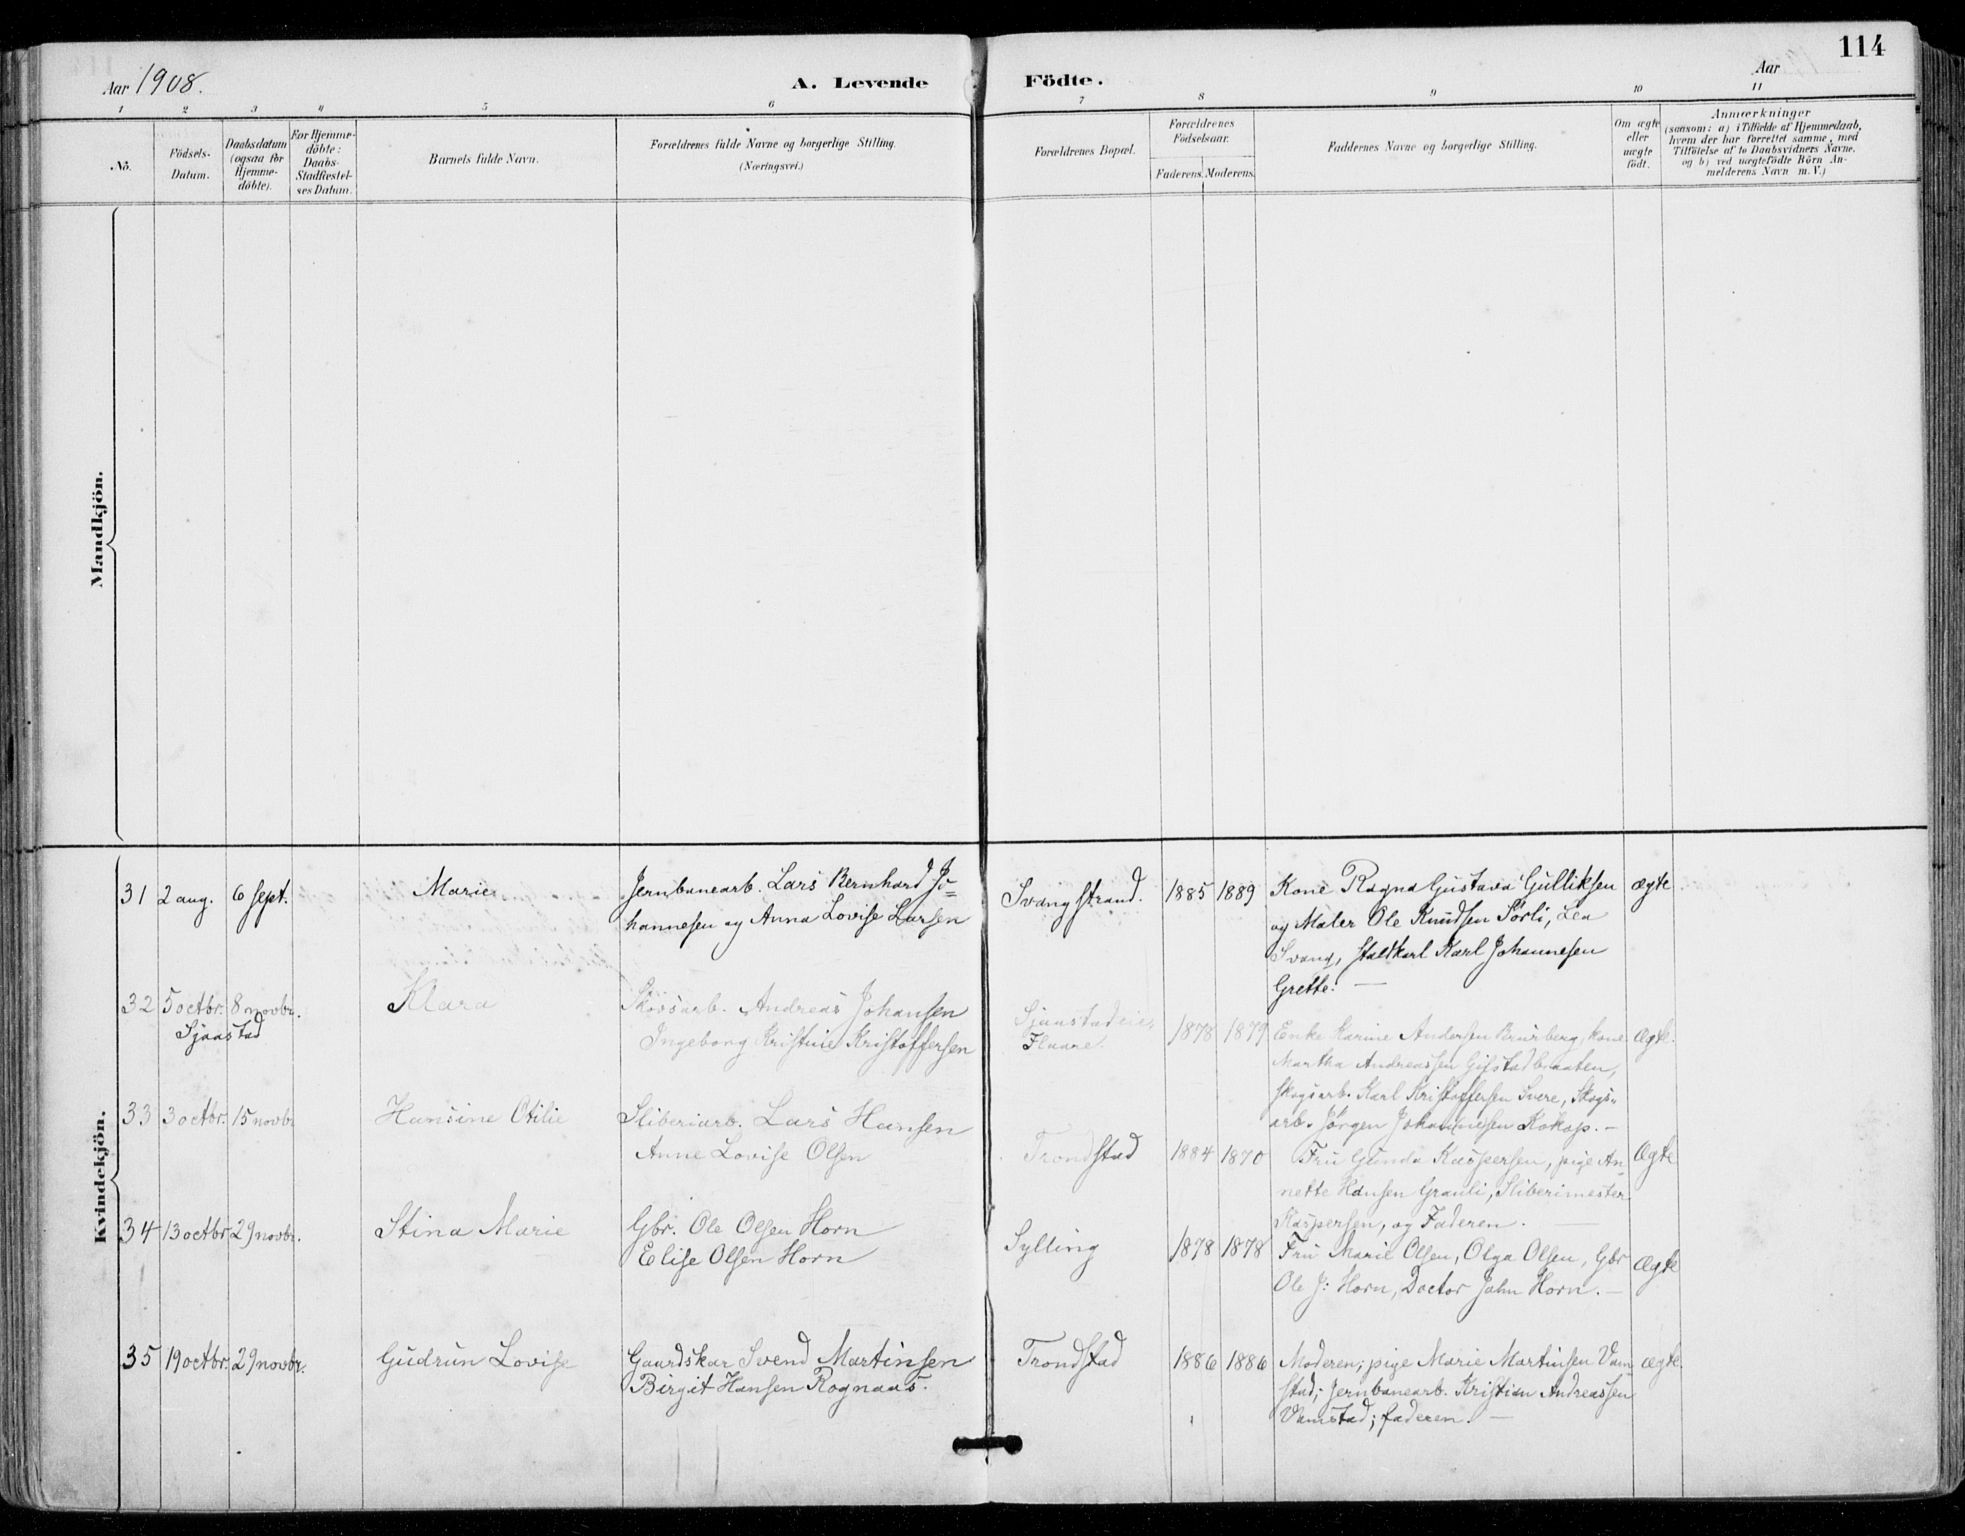 114
Aar 1908.
A. Levende Födte.
Aar
1 2 3 4 5 6 7 8 9 10 11
No.
Födsels-
Datum.
Daabsdatum
(ogsaa för
Hjemme-
döbte).
For Hjemme-
döbte:
Daabs-
Stadfæstel-
ses Datum.
Barnets fulde Navn.
Forældrenes fulde Navne og borgerlige Stilling.
(Næringsvei.)
Forældrenes Bopæl.
Forældrenes
Födselsaar.
Faderens. Moderens.
Faddernes Navne og borgerlige Stilling.
Om ægte
eller
uægte
födt.
Anmærkninger
(saasom: a) i Tilfælde af Hjemmedaab,
hvem der har forrettet samme, med
Tilföielse af to Daabsvidners Navne,
og b) ved uægtefödte Börn An-
melderens Navn m. V.)
Mandkjön.
Kvindekjön.
31 2 aug. 6 sept. Marie
Jernbanearb. Lars Bernhard Jo-
hannesen og Anna Lovise Larsen
Svangstrand. 1885 1889
Kone Ragna Gustava Gulliksen
og Maler Ole Knudsen Sörli, Lea
Svang, staldkarl Karl Johannesen
Grette. —
ægte
32 5 octbr. 8 novbr. Klara
Sjaastad
Skovsarb. Andreas Johansen
Ingeborg Kristine Kristoffersen
Sjaastadeie,
Flaare.
1878 1879
Enke Karine Andersen Brurberg, kone
Martha Andreassen Gifstadbraaten,
skogsarb. Karl Kristoffersen Svere, Skogs-
arb. Jörgen Johannesen Kokap. —
Ægte.
33 3 octbr. 15 novbr Hansine Otilie
Sliberiarb. Lars Hansen
Anne Lovise Olsen
Trondstad 1884 1870
Fru Gunda Kaspersen, pige An-
nette Hansen Grauli, Sliberimester
Kaspersen, og Faderen. —
Ægte
34 13 octbr 29 novbr. Stina Marie
Gbr. Ole Olsen Horn
Elise Olsen Horn
Sylling 1878 1878
Fru Marie Olsen, Olga Olsen, Gbr
Ole J: Horn, Doctor John Horn. —
Ægte
35 19 octbr. 29 novbr. Gudrun Lovise
Gaardskar Svend Martinsen
Birgit Hansen Rognaas.
Trondstad 1886 1886
Moderen; pige Marie Martinsen Vam-
stad; Jernbanearb. Kristian Andreassen
Vamstad; faderen. —
ægte.